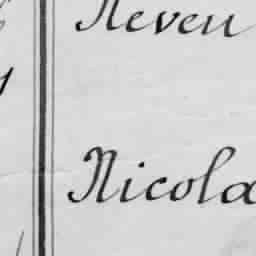 Neveu
Nicola